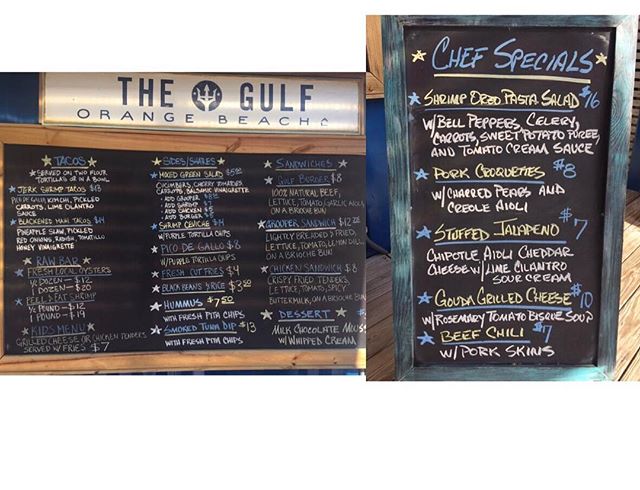 THE GULF
ORANGE BEACH
TACOS
SERVED ON TWO FLOUR
TORTILLA'S OR IN A BOWL
JERK SHRIMP TACOS $13
KIMCHI, PICKLED
CARROTS, LIME CILANTRO
SAUCE
BLACKENED MAHI TACOS $14
PINEAPPLE SLAW, PICKLED
RED ONIONS, RADISH, TOMATILLO
HONEY VINAIGRETTE
RAW BAR
FRESH LOCAL OYSTERS
½ DOZEN - $12
1 DOZEN - $20
PEEL & EAT SHRIMP
½ POUND - $12
1 POUND - $19
KIDS MENU
GRILLED CHEESE OR CHICKEN TENDERS
SERVED W/ FRIES $7
SIDES/SHARES
MIXED GREEN SALAD
CUCUMBERS, CHERRY TOMATOES,
CARROTS, BALSAMIC VINAIGRETTE
- ADD GROUPER
- ADD SHRIMP
- ADD CHICKEN
- ADD BURGER
SHRIMP CEVICHE $14
W/PURPLE TORTILLA CHIPS
PICO DE GALLO $8
W/PURPLE TORTILLA CHIPS
FRESH CUT FRIES $4
BLACK BEANS & RICE
HUMMUS
WITH FRESH PITA CHIPS
SMOKED TUNA DIP $13
WITH FRESH PITA CHIPS
SANDWICHES
GULF BURGER $8
100% NATURAL BEEF,
LETTUCE, TOMATO, GARLIC AIOLI
ON A BRIOCHE BUN
GROUPER SANDWICH
LIGHTLY BREADED & FRIED,
LETTUCE, TOMATO, LEMON
ON A BRIOCHE BUN
CHICKEN SANDWICH $8
CRISPY FRIED TENDERS,
LETTUCE, TOMATO, SPICY
BUTTERMILK, ON A BRIOCHE BUN
DESSERT
MILK CHOCOLATE
W/ WHIPPED CREAM
CHEF SPECIALS
SHRIMP ORZO PASTA SALAD $16
W/BELL PEPPERS, CELERY,
CARROTS, SWEET POTATO PUREE,
AND TOMATO CREAM SAUCE
PORK CROQUETTES $8
W/CHARRED PEARS AND
CREOLE AIOLI
STUFFED JALAPENO $7
CHIPOTLE AIOLI CHEDDAR
CHEESE W/LIME CILANTRO
SOUR CREAM
GOUDA GRILLED CHEESE $10
W/ROSEMARY TOMATO BISQUE SOUP
BEEF CHILI $7
W/PORK SKINS